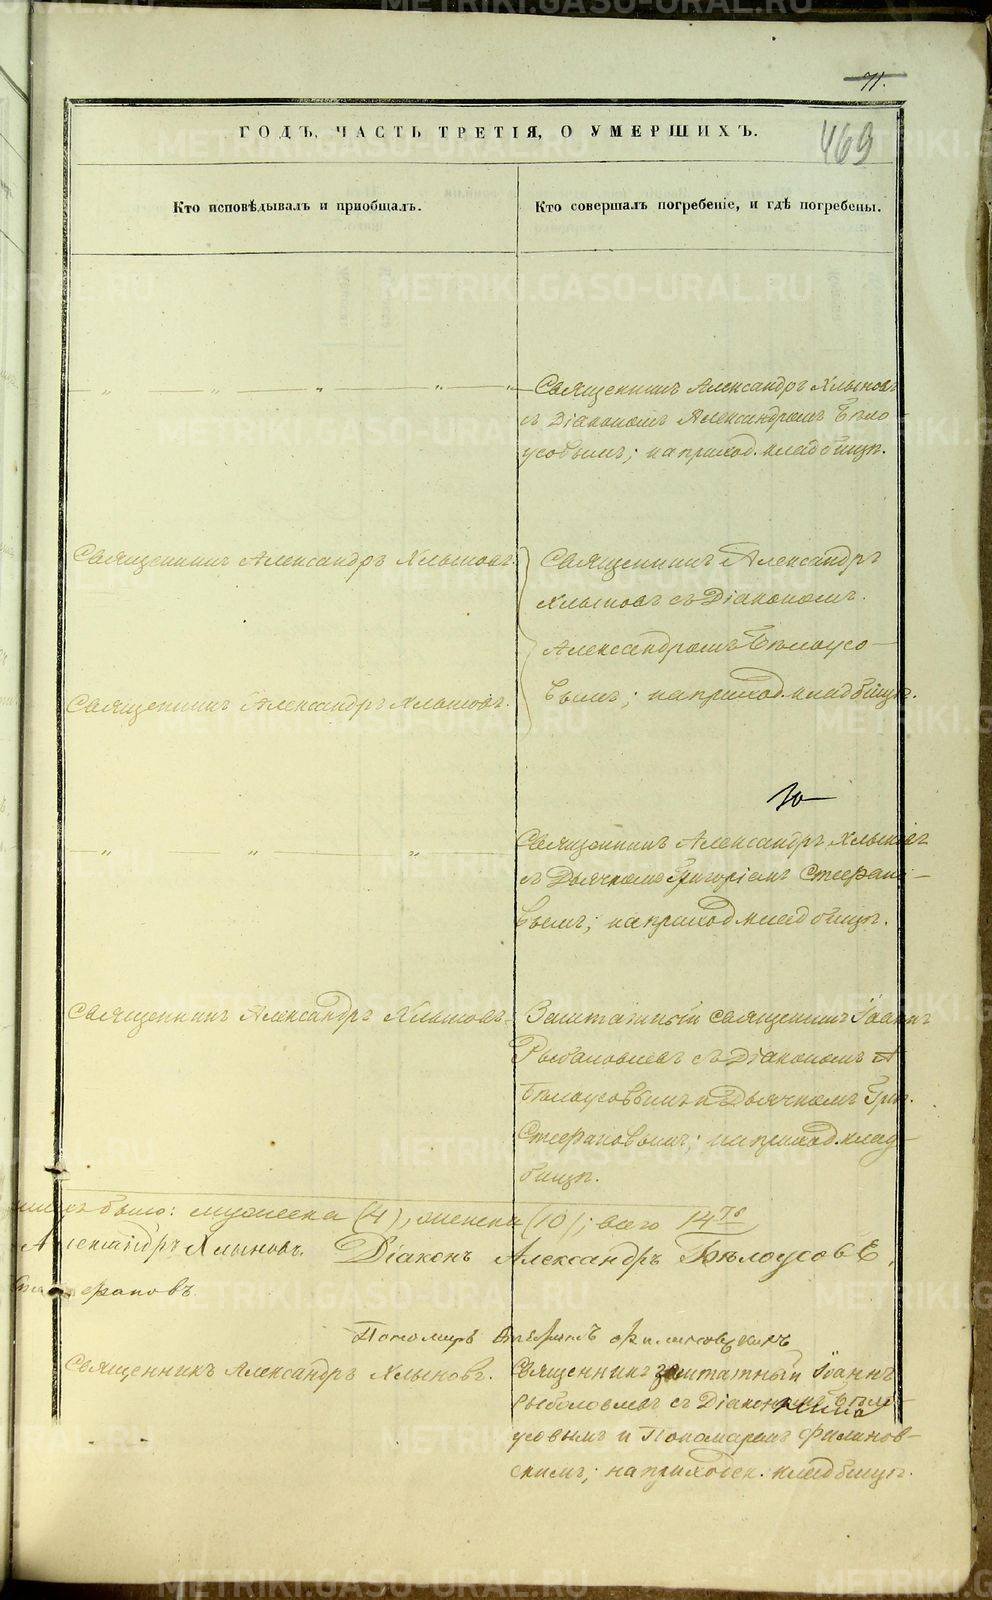 71.
469
ГОДЪ, ЧАСТЬ ТРЕТІЯ, О УМЕРШИХЪ.
Кто исповѣдывалъ и приобщалъ.
Кто совершалъ погребеніе, и гдѣ погребены.
Священникъ Александръ Хлыновъ
съ Діакономъ Александромъ Бѣло-
усовымъ; на приход. кладбищѣ.
Священникъ Александръ Хлыновъ.
Священникъ Александръ
Хлыновъ съ Діакономъ
Александромъ Бѣлоусо-
вымъ; на приход. кладбищѣ.
Священникъ Александръ Хлыновъ.
Священникъ Александръ Хлыновъ
съ Дьячкомъ Григоріемъ Стефано-
вымъ; на приход кладбищѣ.
Священникъ Александръ Хлыновъ.
Заштатный священникъ Іоаннъ
съ Діакономъ А
Бѣлоусовымъ и Дьячкомъ Григ.
Стефановымъ; на приход. клад-
бищѣ.
было: мужеска (4), женска (10); всего 14ть
Александръ Хлыновъ. Діаконъ Александръ Бѣлоусовъ.
Стефановъ
Пономарь Филиновскій
Священникъ Александръ Хлыновъ.
Священникъ заштатный Іоаннъ
Рыболовлевъ съ Діакономъ Бѣло-
усовымъ и Пономаремъ Филинов-
скимъ; на приходск. кладбищѣ.
METRIKI.GASO-URAL.RU